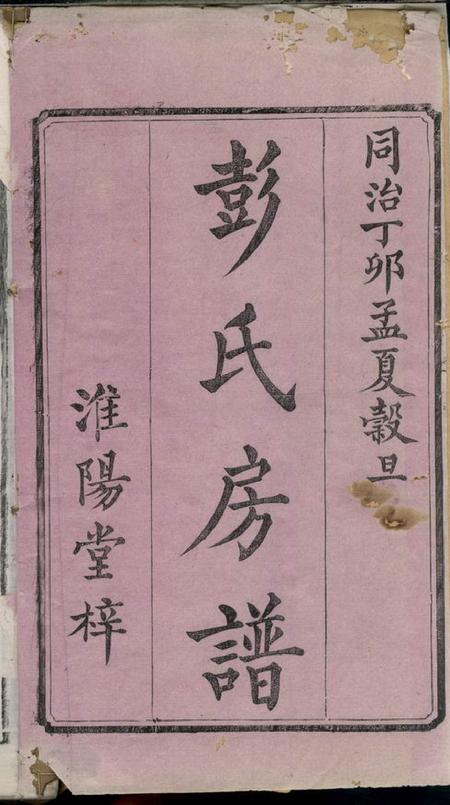 同治丁卯孟夏穀旦
彭氏房譜
淮陽堂梓